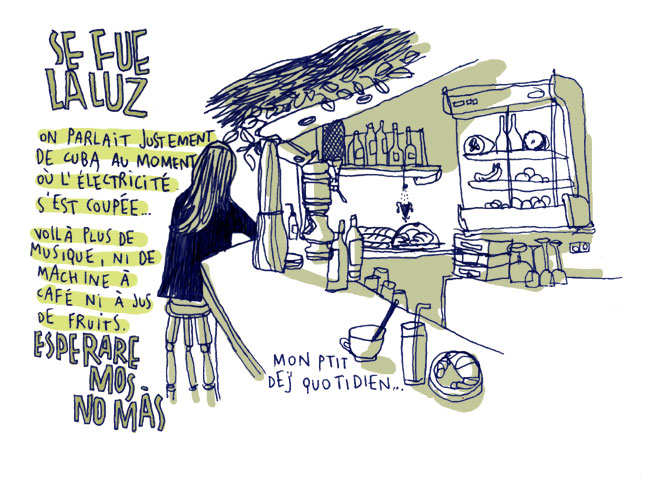 SE FUE
LA LUZ
ON PARLAIT JUSTEMENT
DE CUBA AU MOMENT
OÙ L'ÉLECTRICITÉ
S'EST COUPÉE...
VOILÀ PLUS DE
MUSIQUE, NI DE
MACHINE À
CAFÉ NI À JUS
DE FRUITS.
ESPERARE
MOS
NO MÀS
MON PTIT
DEJ QUOTIDIEN...